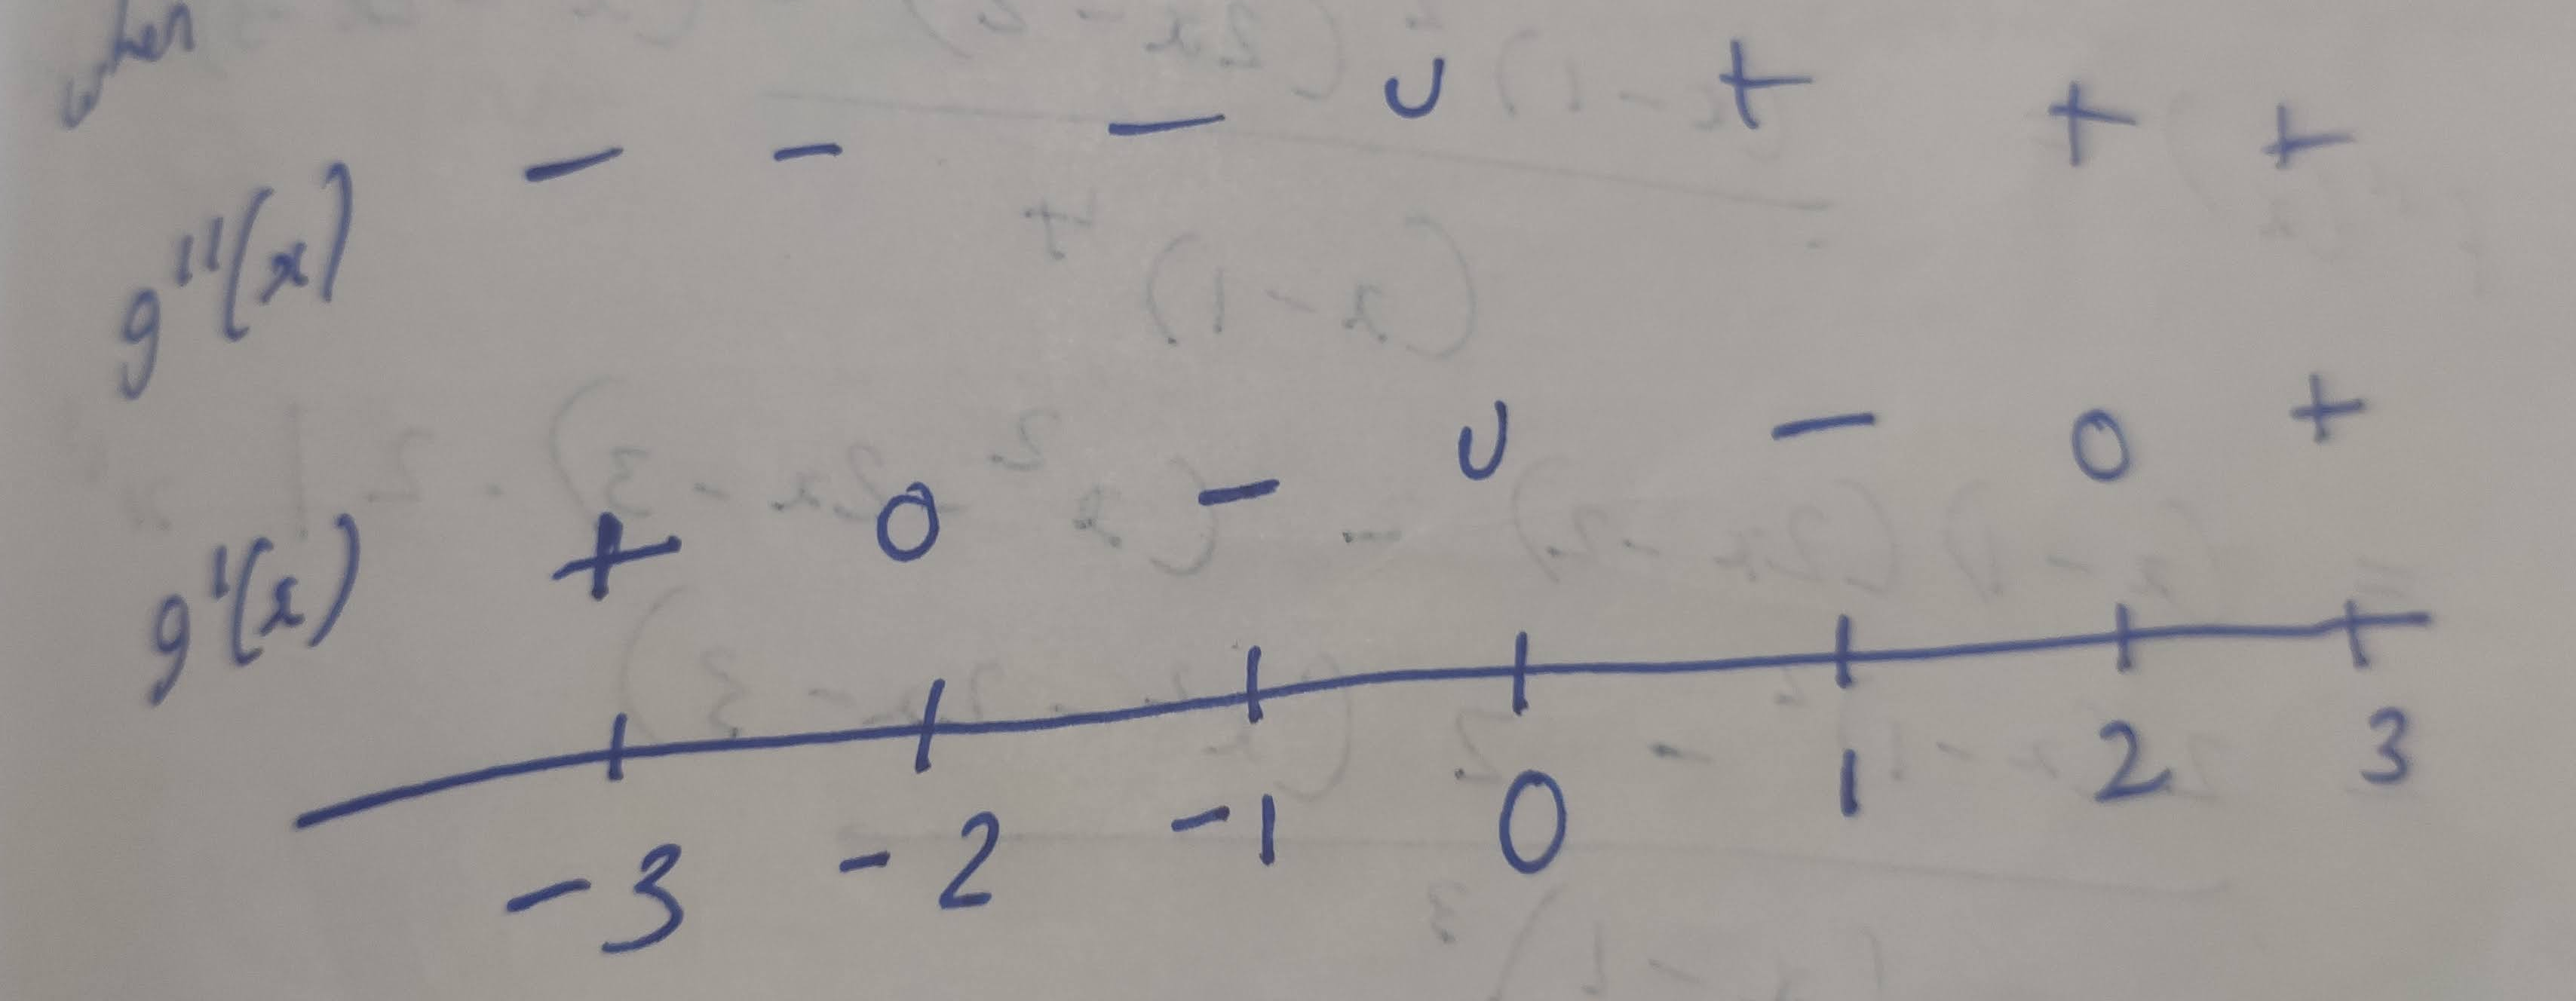 when
g''(x) - - - U + + +
g'(x) + 0 - U - 0 +
-3 -2 -1 0 1 2 3